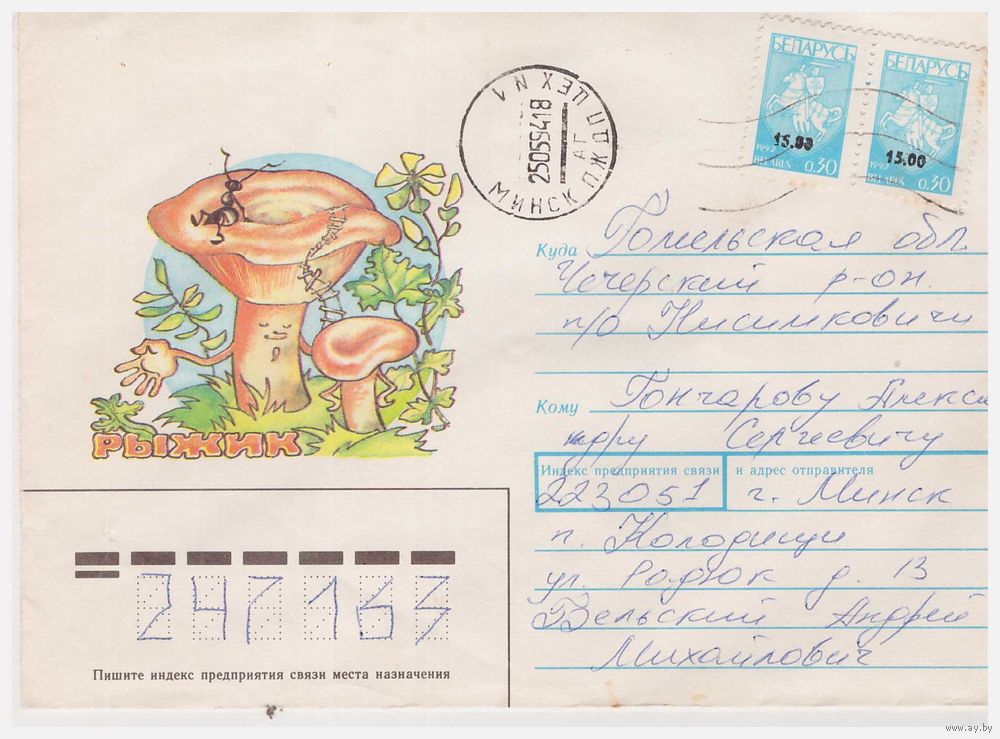 БЕЛАРУСЬ БЕЛАРУСЬ
15.00 15.00
1992 BELARUS 0.30 1992 BELARUS 0.30
МИНСК ПЖДП ЦЕХ N 1
АГ
25059418
Куда Гомельская обл
Чечерский р-он.
п/о Нисимковичи
Кому Гончарову Алекса
ндру Сергеевичу
Индекс предприятия связи и адрес отправителя
223051 г. Минск
п. Колодищи
ул. Радюк д. 13
Вельский Андрей
Михайлович
РЫЖИК
247163
Пишите индекс предприятия связи места назначения
www.ay.by